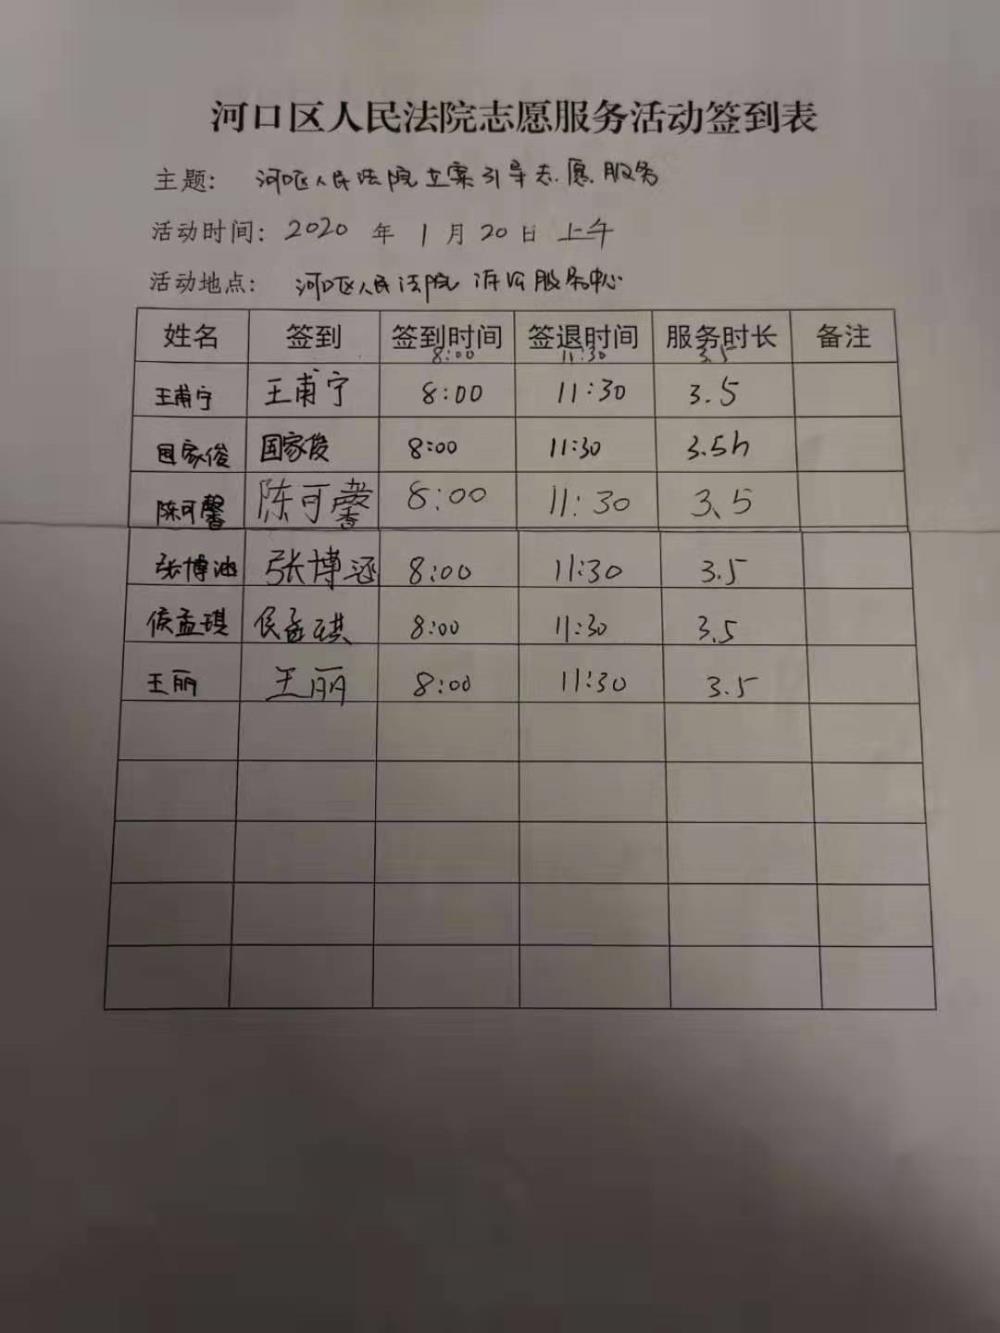 河口区人民法院志愿服务活动签到表
主题: 河口区人民法院立案引导志愿服务
活动时间: 2020 年 1 月 20 日 上午
活动地点: 河口区人民法院诉讼服务中心
姓名 签到 签到时间 签退时间 服务时长 备注
8:00 11:30 3.5
王甫宁 王甫宁 8:00 11:30 3.5
国家俊 国家俊 8:00 11:30 3.5h
陈可馨 陈可馨 8:00 11:30 3.5
张博涵 张博涵 8:00 11:30 3.5
侯孟琪 侯孟琪 8:00 11:30 3.5
王丽 王丽 8:00 11:30 3.5